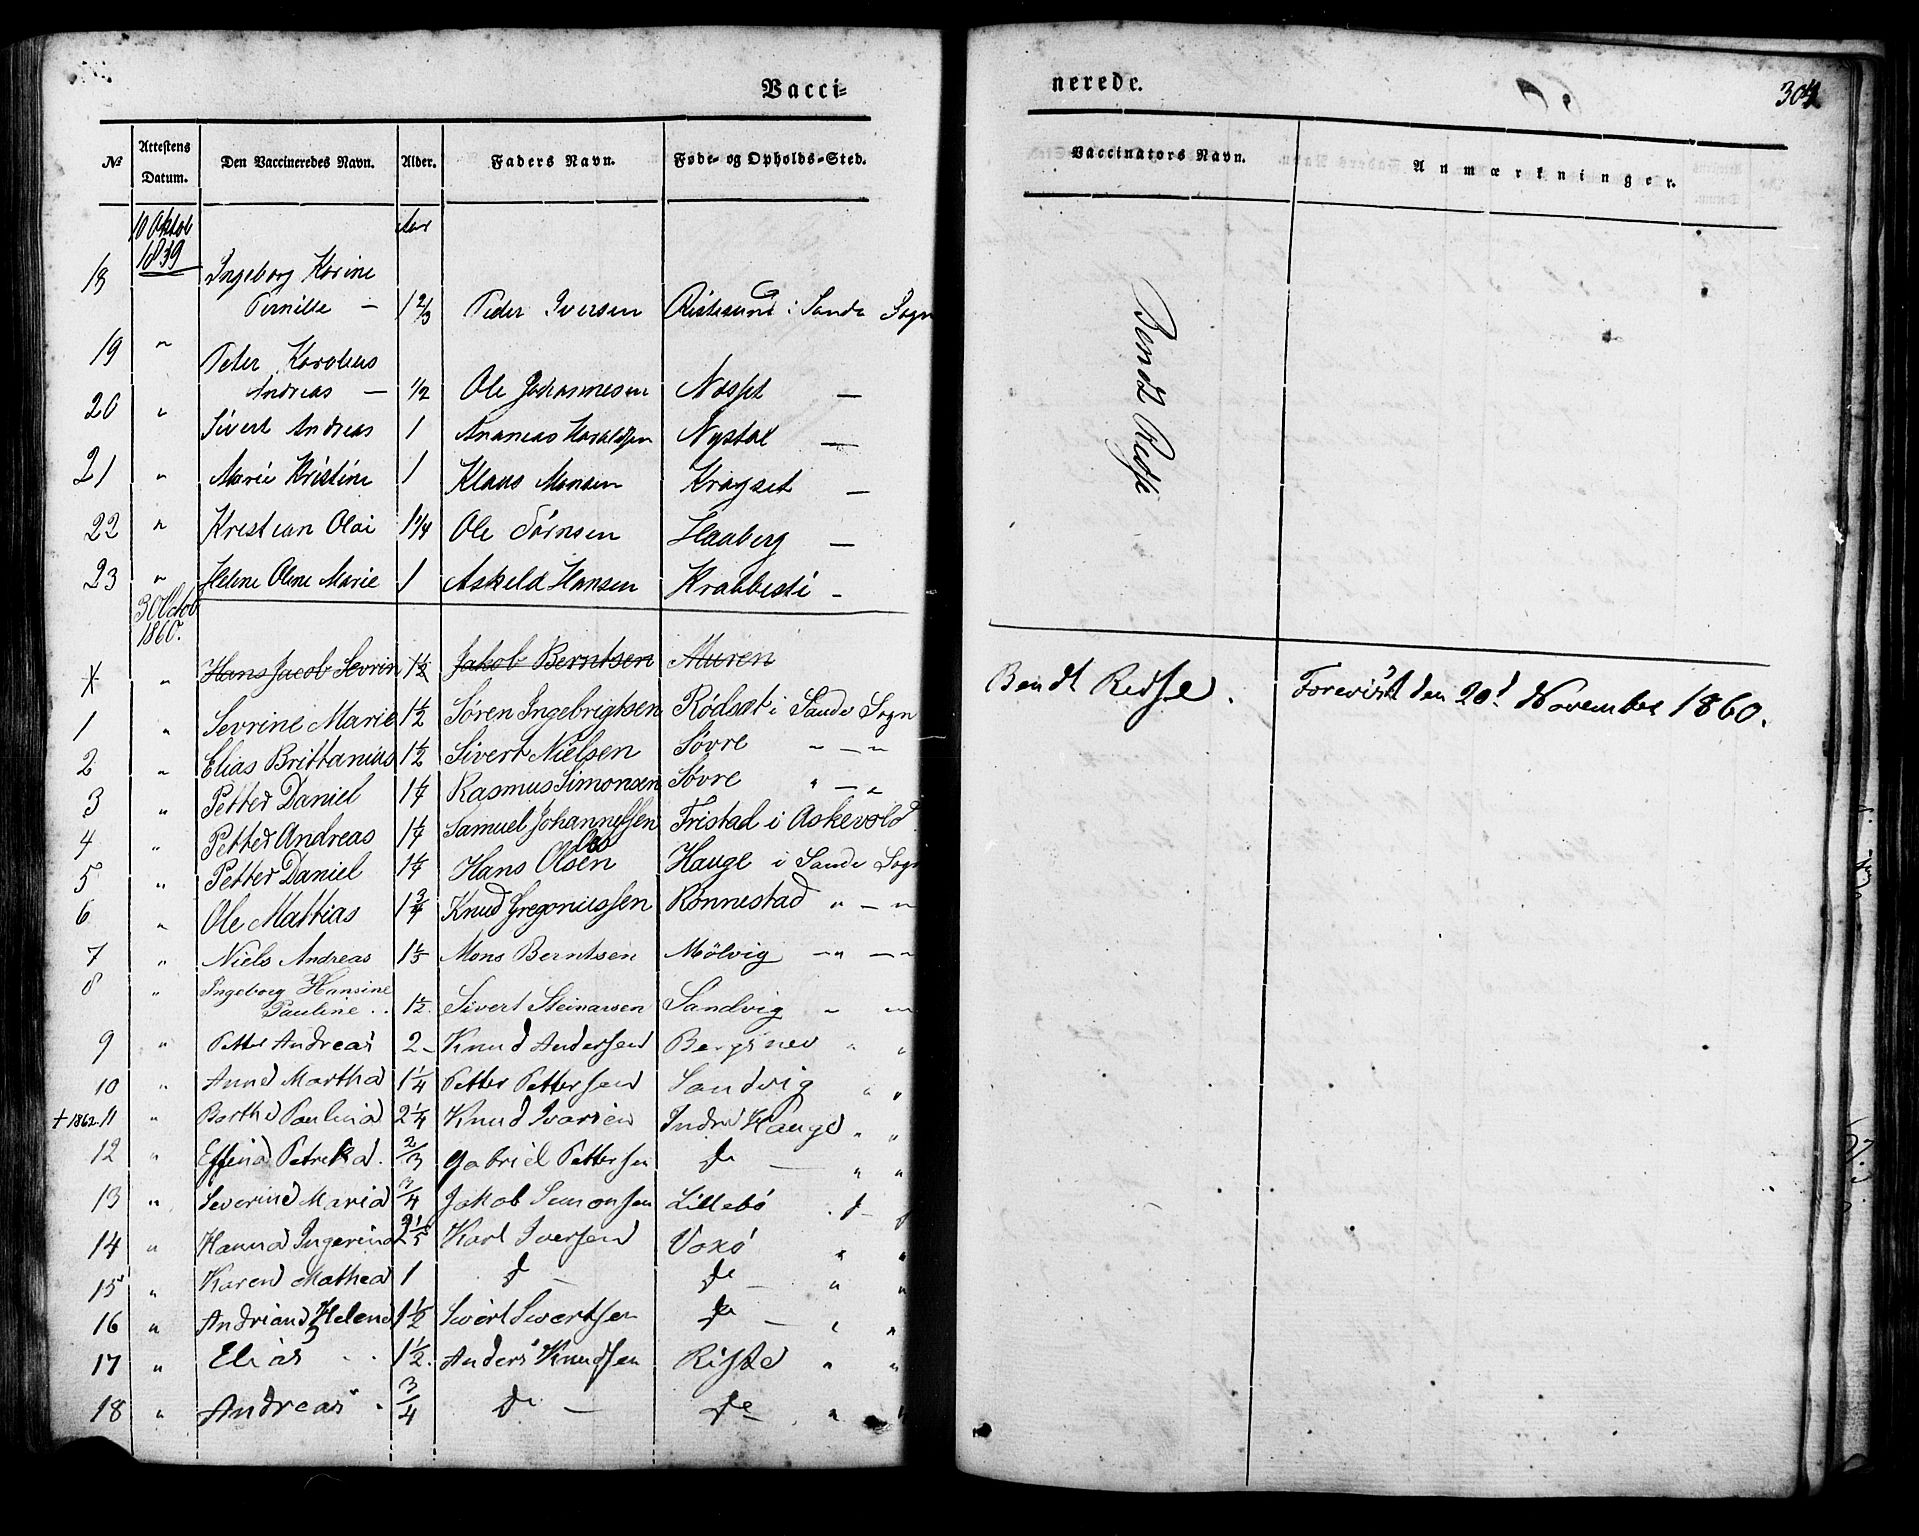 Vacci-
nerede.
304
№ Attestens Datum. Den Vaccineredes Navn. Alder. Faders Navn. Føde- og Opholds-Sted. Vaccinators Navn. Anmærkninger.
10 Oktob 1859 Aar
18 Ingeborg Karine
Pernille — 1 2/3 Peder Iversen Ristesund i Sande Sogn
Bendt Ridse
19 " Peter Karolius
Andreas — 1/2 Ole Johannesen Nosset —
20 " Sivert Andreas 1 Ananias Haraldssen Nystøl —
21 " Marie Kristine 1 Klaus Monsen Kragset —
22 " Kristian Olai 1 1/4 Ole Jørnsen Haaberg —
23 " Helene Oline Marie 1 Askeld Hansen Krabbesti -
3 Octob 1860.
X " Hans Jacob Sevrin 1 1/2 Jakob Berntsen Muren
1 " Sevrine Marie 1 1/2 Søren Ingebrigtsen Rödsæt i Sande Sogn Bendt Ridse. Foreviist den 20d November 1860.
2 " Elias Brittanius 1 1/2 Sivert Nielsen Søvre " — "
3 " Petter Daniel 1 1/4 Rasmus Simonsen Søvre " — "
4 " Petter Andreas 1 1/4 Samuel Johannessen Fristad i Askevold
5 " Petter Daniel 1 1/4 Hans Olsen Hauge i Sande Sogn
6 " Ole Mattias 1 3/4 Knud Gregoriussen Rönnestad " — "
7 " Niels Andreas 1 1/3 Mons Berntsen Mölvig — " — "
8 " Ingeborg Hansine
Pauline .. 1 1/2 Sivert Steinarsen Sandvig " "
9 " Petter Andreas 2 - Knud Andersen Bergsnev " "
10 " Anne Martha 1 1/4 Petter Pettersen Sandvig " "
+ 1862. 11 " Barthe Paulina 2 1/4 Knud Ivarsen Indre Hauge " "
12 " Effina Petrika. 2/3 Gabriel Pettersen do — " "
13 " Severine Maria 3/4 Jakob Simonsen Lillebö
14 " Hanna Ingerina 2 1/5 Karl Iversen Voxö " "
15 " Karen Mathea 1 do — do — " "
16 " Andriane Helena 1 1/2 Sivert Sivertsen do — " "
17 " Elias .. 1 1/2. Anders Knudsen Riste " "
18 " Andreas . 3/4 do — do " "